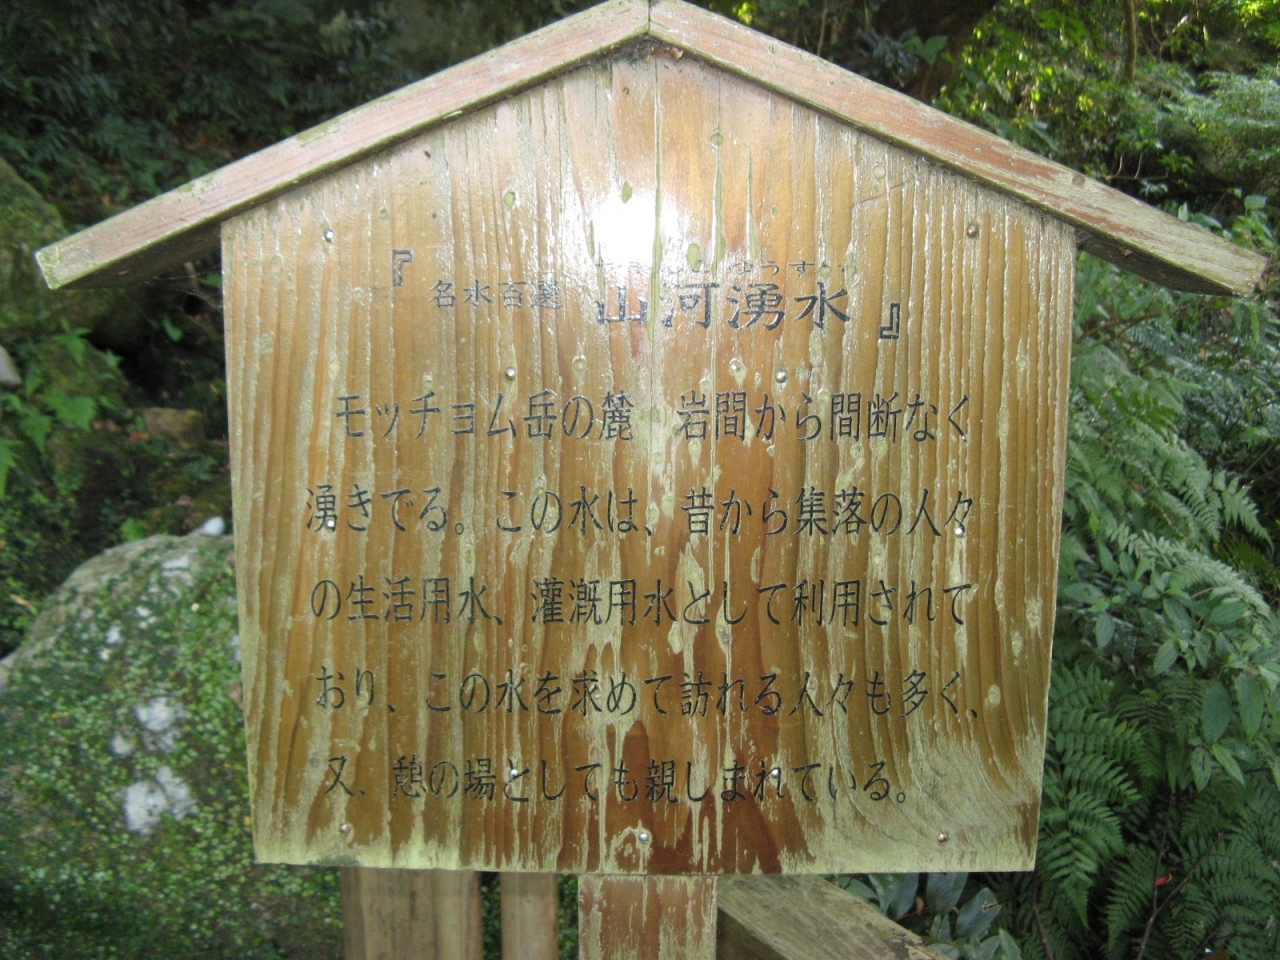 『名水百選 山河湧水』
モッチョム岳の麓 岩間から間断なく
湧きでる。この水は、昔から集落の人々
の生活用水、灌漑用水として利用されて
おり、この水を求めて訪れる人々も多く、
又、憩の場としても親しまれている。